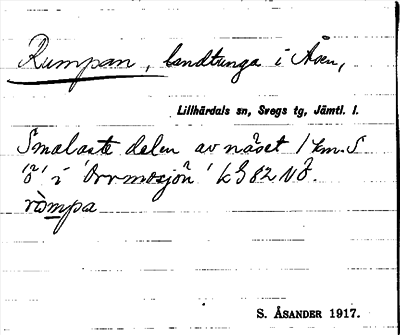 Rumpan, landtunga i Åsen,
Lillhärdals sn, Svegs tg, Jämtl. l.
Smalaste delen av näset 1 km. S
"ö" i Orrmosjön' kG 82 NÖ.
ròmpa
S. ÅSANDER 1917.